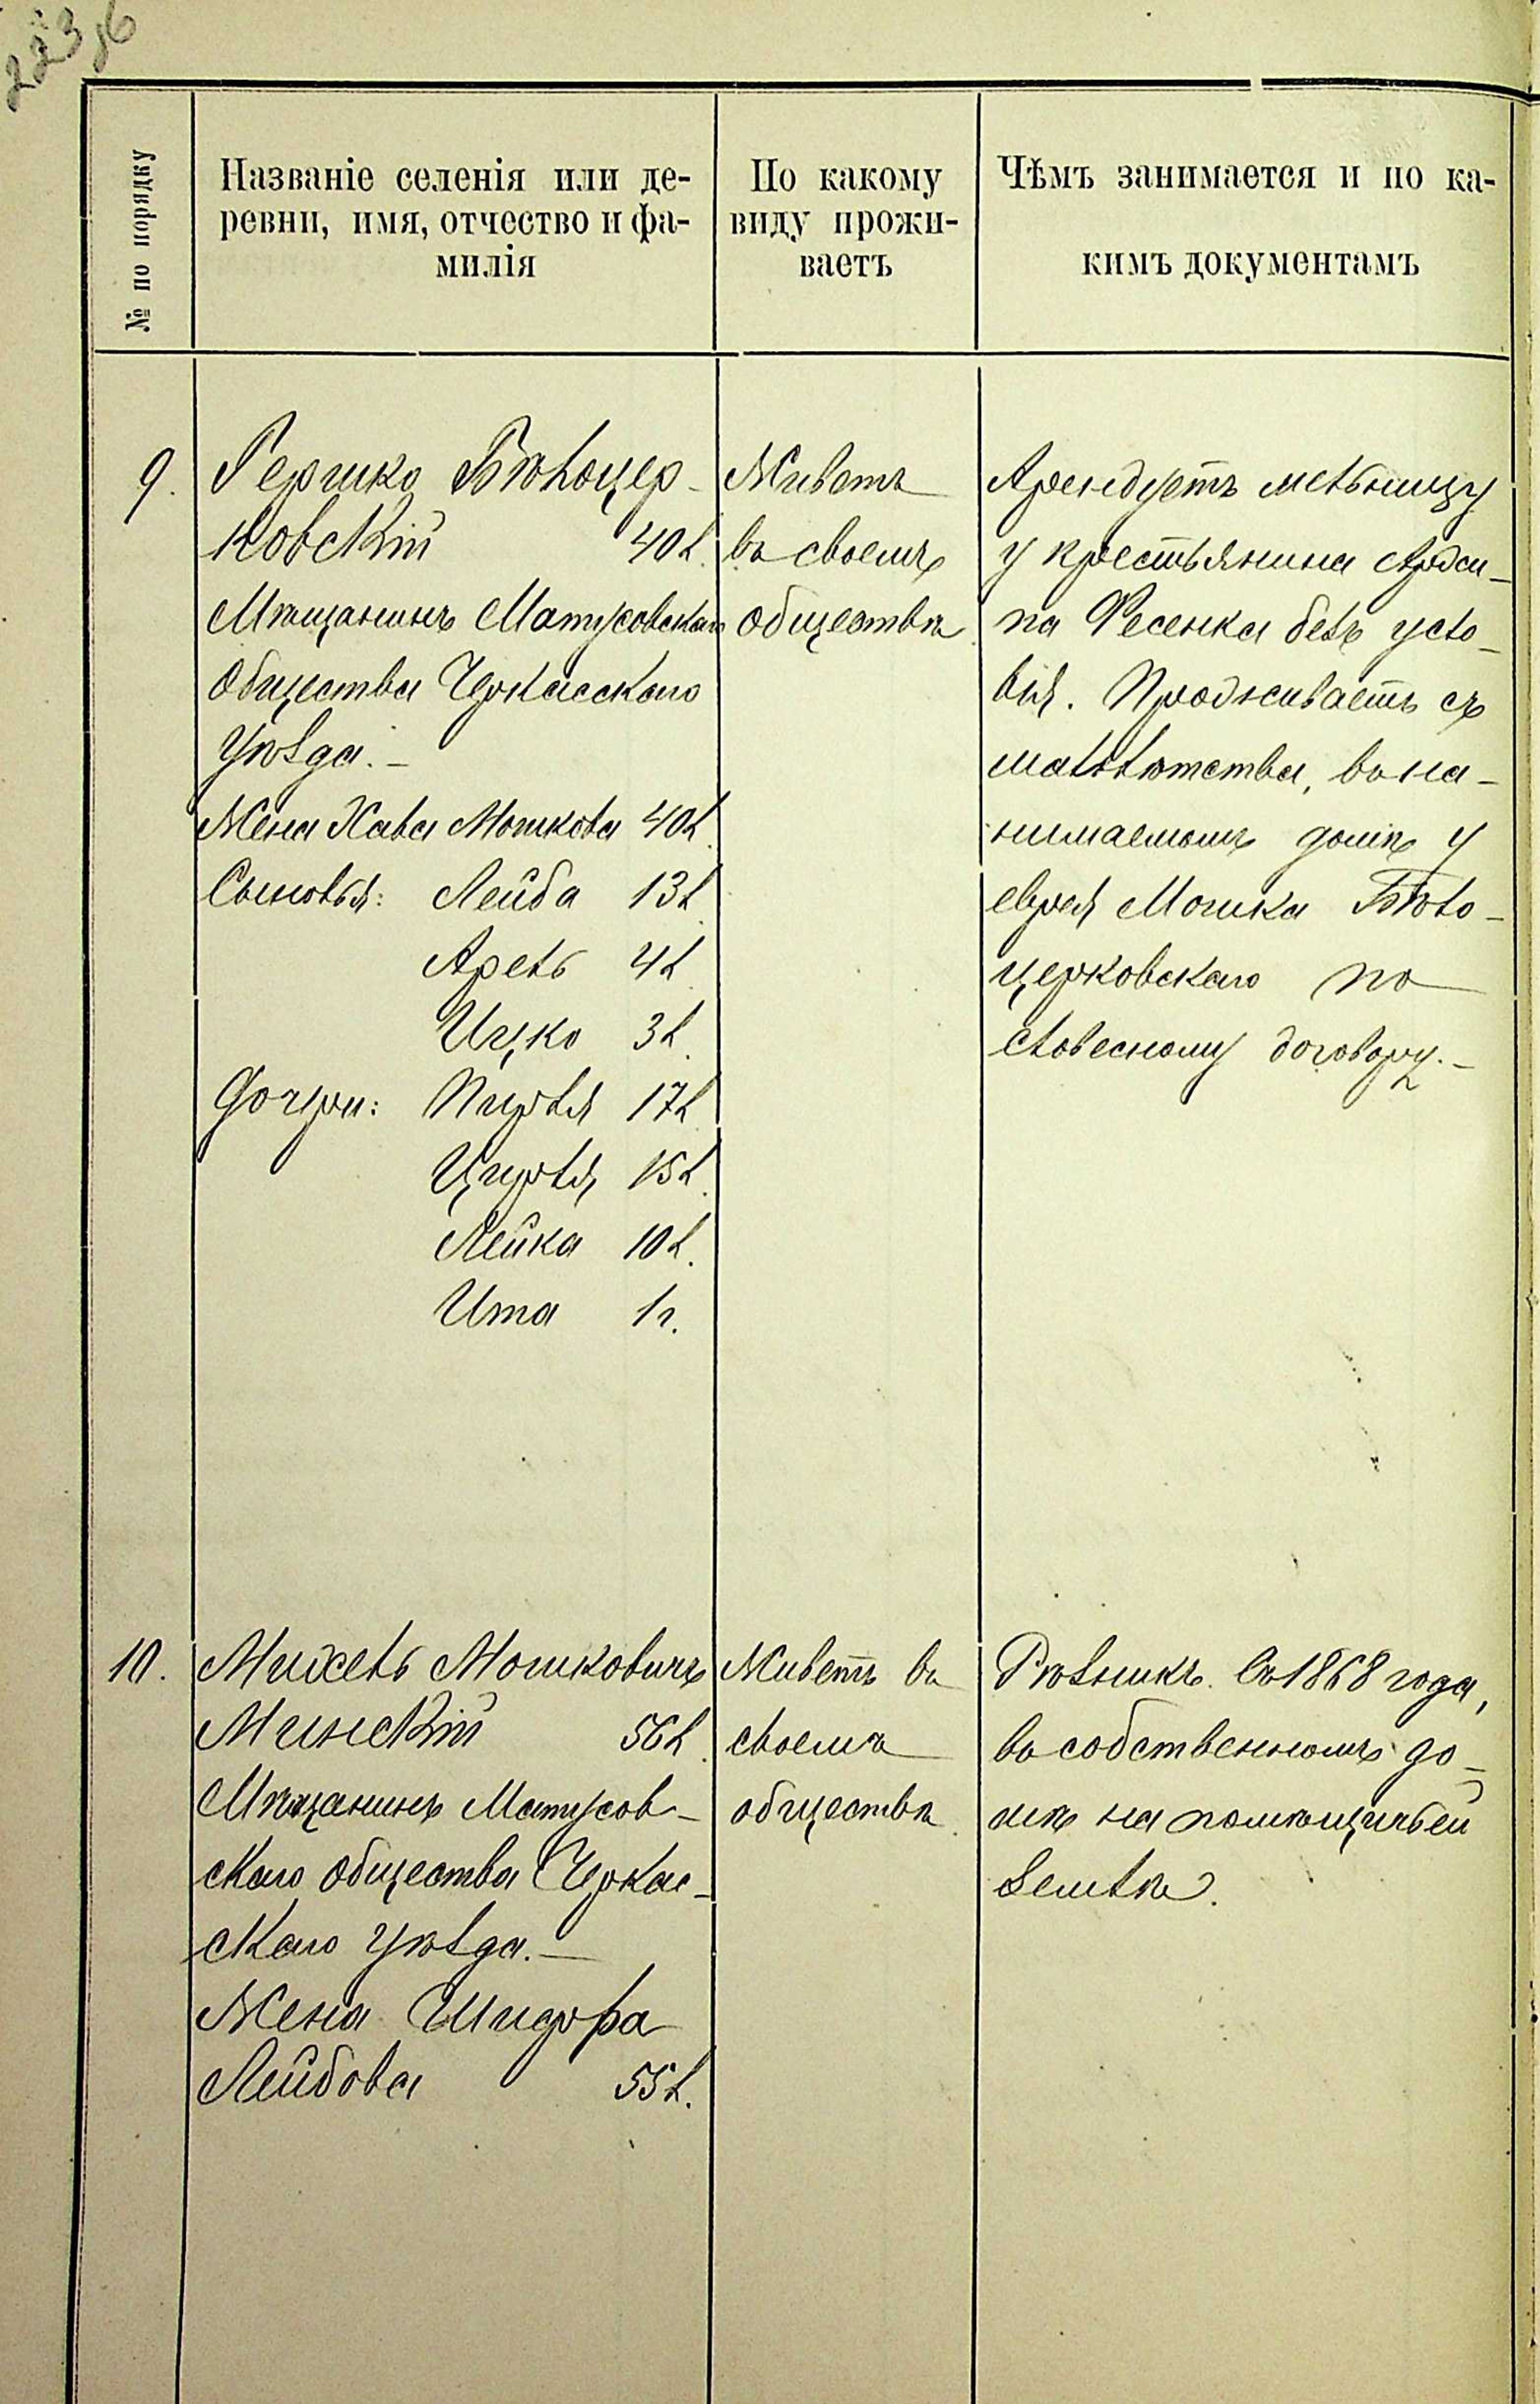 223 об
№ по порядку
Названіе селенія или де-
ревни, имя, отчество и фа-
милія
По какому
виду прожи-
ваетъ
Чѣмъ занимается и по ка-
кимъ документамъ
9.
Гершко Бѣлоцер-
ковскій 40 л.
Мѣщанинъ Матусовскаго
Общества Черкасскаго
Уѣзда. –
Жена Хава Мошкова 40 л.
Сыновья: Лейба 13 л.
Арель 4 л.
Ицко 3 л.
Дочери: Пирля 17 л.
Цирля 15 л.
Лейка 10 л.
Ита 1 г.
Живетъ
въ своемъ
обществѣ
Арендуетъ мельницу
у крестьянина
Фесенка безъ усло-
вія. Проживаетъ съ
малолѣтства, въ на-
нимаемомъ домѣ у
еврея Мошка Бѣло-
церковскаго по
словесному договору. –
10.
Михель Мошковичъ
Минскій 56 л.
Мѣщанинъ Матусов-
скаго общества Черкас-
скаго уѣзда. –
Жена Шифра
Лейбова 55 л.
Живетъ въ
своемъ
обществѣ.
Рѣзникъ. Съ 1868 года,
въ собственномъ до-
мѣ на помѣщичьей
землѣ.